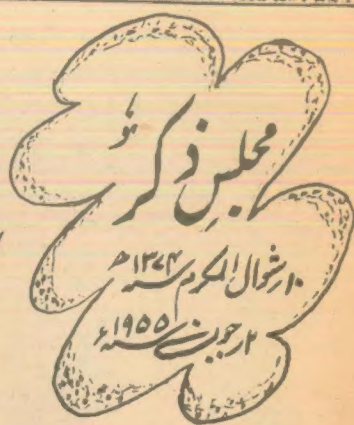 مجلس ذکر
۱۰ر شوال المکرم سنہ ۱۳۷۴ھ
۲ر جون سنہ ۱۹۵۵ء